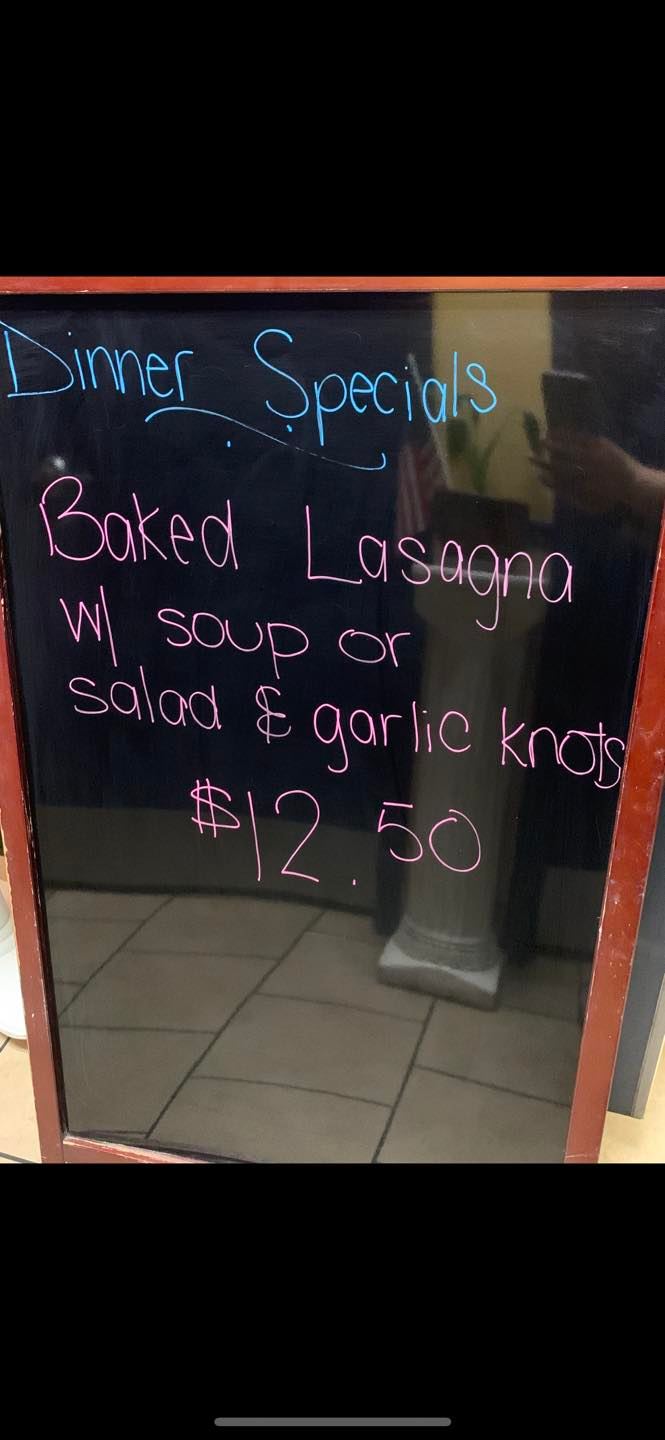 Dinner Specials
Baked Lasagna
w/ soup or
salad & garlic knots
$12.50